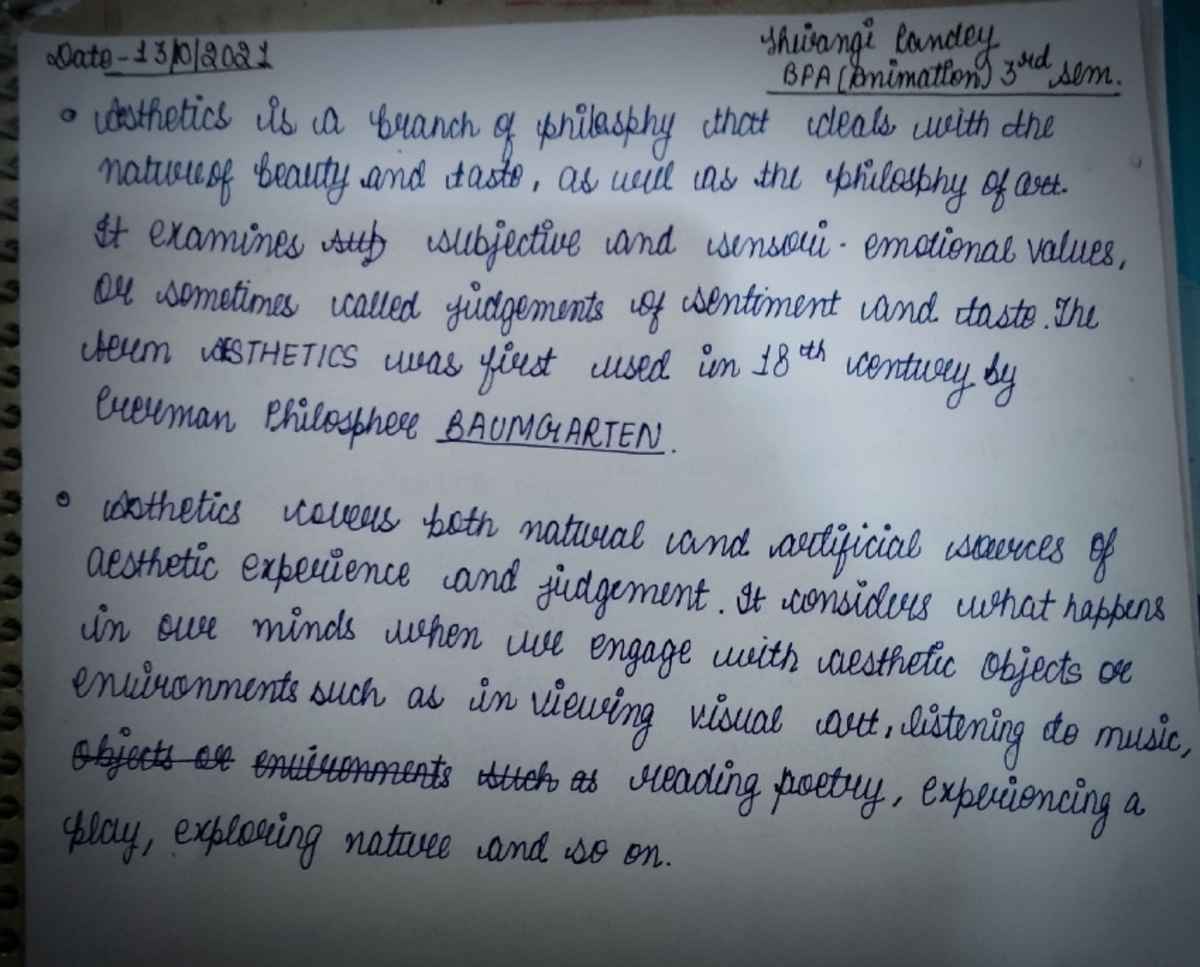 Date - 13/0/2021
Shivangi Pandey
BPA (Animation) 3rd sem.
• Aesthetics is a branch of philasphy that deals with the
nature of beauty and taste, as well as the philosphy of art.
It examines sub subjective and sensori - emotional values,
or sometimes called judgements of sentiment and taste. The
term AESTHETICS was first used in 18th century by
German Philospher BAUMGARTEN.
• Aesthetics covers both natural and artificial sources of
aesthetic experience and judgement. It considers what happens
in our minds when we engage with aesthetic objects or
environments such as in viewing visual art, listening to music,
objects or environments such as reading poetry, experiencing a
play, exploring nature and so on.